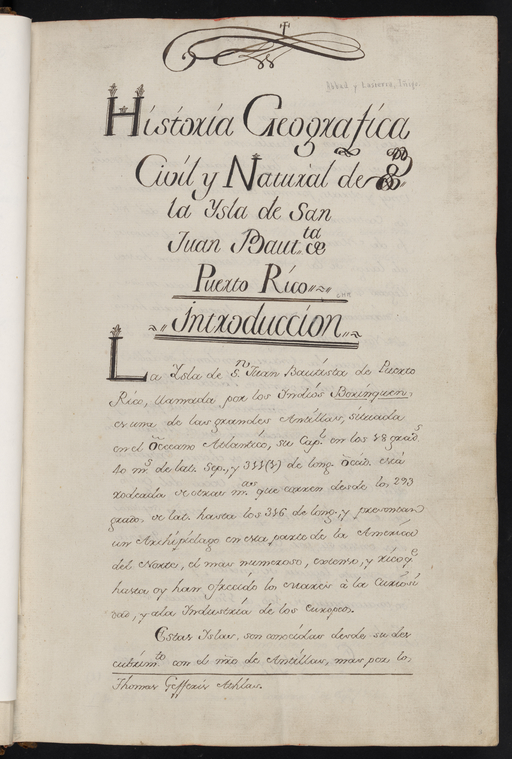 Abbad y Lasierra, Iñigo
Historia Geografica
Civil y Natural de
la Ysla de San
Juan Bautta de
Puerto Rico
Introduccion
La Ysla de Sn Juan Bautista de Puerto
Rico, llamada por los Indios Borinquen,
es una de las grandes Antillas, situada
en el Occeano Atlantico, su Capl en los 18 grads
10 ms de lat. Sep., y 311(1) de long. Occid. está
rodeada de otras mas que corren desde los 293
grados de lat. hasta los 316 de long., y presentan
un Archipiélago en esta parte de la America
del Norte, el mas numeroso, extenso, y rico qe
hasta oy han ofrecido los mares à la Curiosi
dad, y ala Industria de los Europeos.
Estas Islas, son conocidas desde su des
cubrimto con el nre de Antillas, mas por lo,
Thomas Gefferis Athlas.